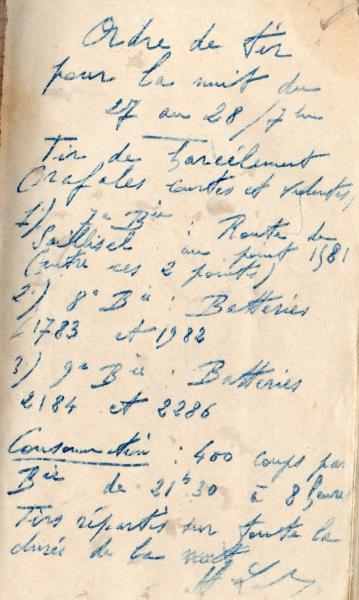 Ordre de tir
pour la nuit du
27 au 28/7bre
Tir de harcèlement
Rafales courtes et violentes,
1) 7e Bie : Route de
Saillisel au point 1981
(entre ces 2 points)
2) 8e Bie : Batteries
1783 et 1982
3) 9e Bie : Batteries
2184 et 2286
Consommation : 400 coups par
Bie de 21h30 à 8 heures
Tirs répartis sur toute la
durée de la nuit